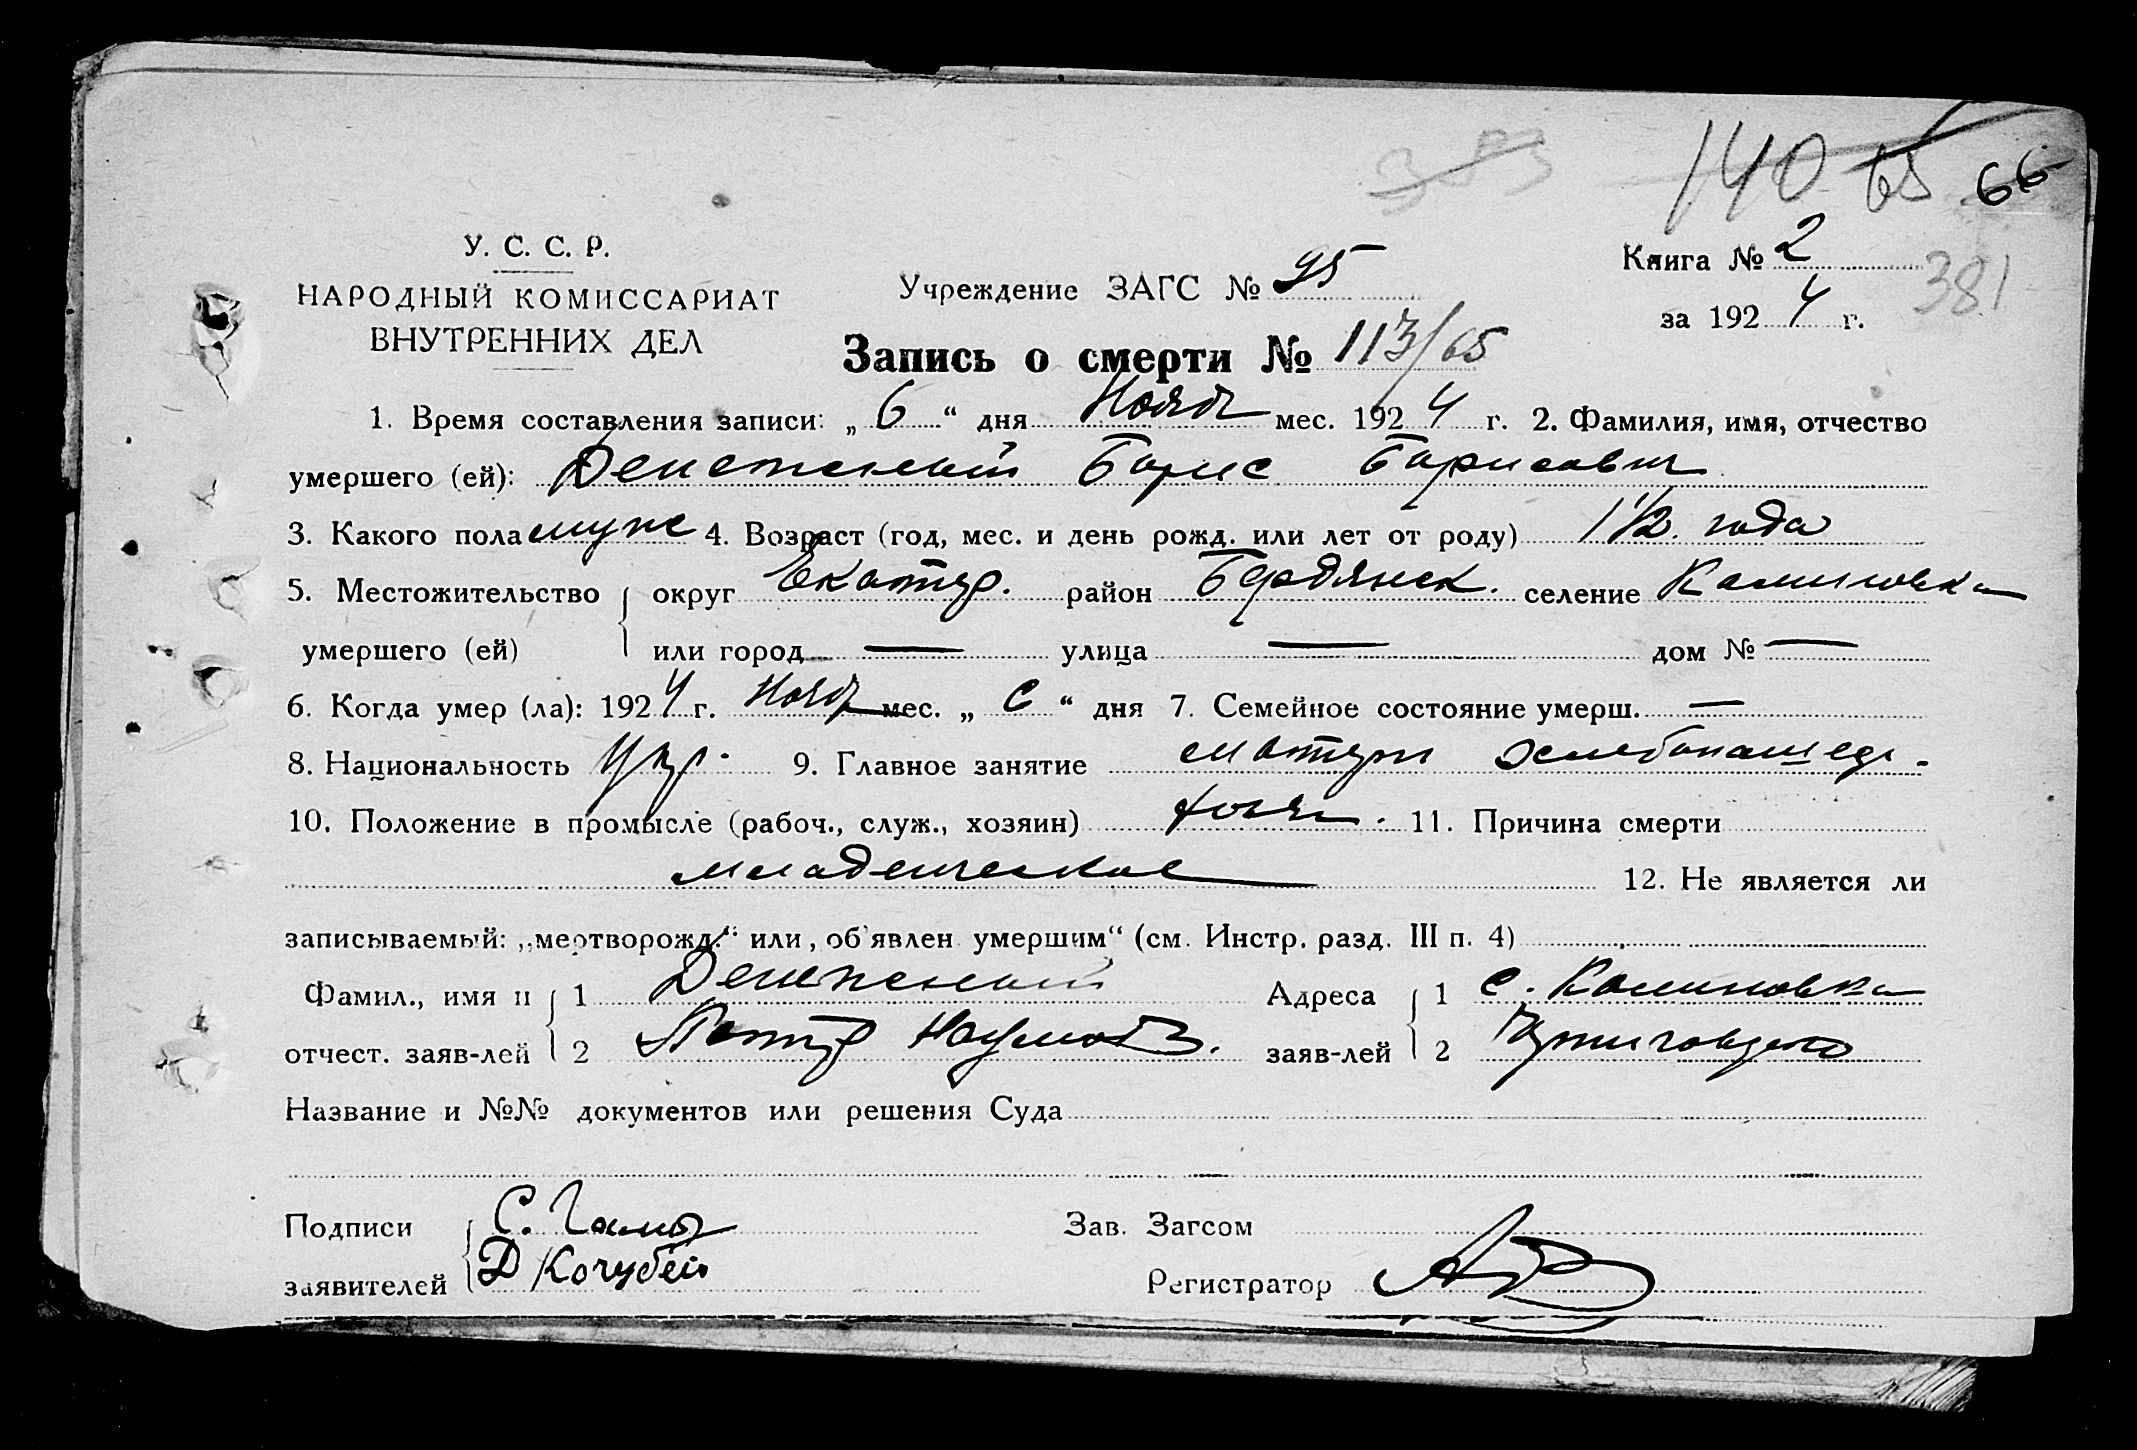 140 65 66
У. С. С. Р.
НАРОДНЫЙ КОМИССАРИАТ
ВНУТРЕННИХ ДЕЛ
Учреждение ЗАГС № 95
Книга № 2
за 1924 г. 381
Запись о смерти № 113/65
1. Время составления записи: „ 6 “ дня Нояб мес. 1924 г. 2. Фамилия, имя, отчество
умершего (ей): Борис Борисович
3. Какого пола муж 4. Возраст (год, мес. и день рожд. или лет от роду) 1 1/2 года
5. Местожительство округ Екатер. район Бердянск. селение Калиновка
умершего (ей) или город — улица — дом № —
6. Когда умер (ла): 1924 г. Нояб мес. „ “ дня 7. Семейное состояние умерш. —
8. Национальность Укр. 9. Главное занятие матери хлебопашец.
10. Положение в промысле (рабоч., служ., хозяин) хозяин. 11. Причина смерти
младенческое 12. Не является ли
записываемый: „мертворожд.“ или „об'явлен умершим“ (см. Инстр. разд. III п. 4)
Фамил., имя и 1 Адреса 1 с. Калиновка
отчест. заяв-лей 2 Петр Наумов. заяв-лей 2
Название и №№ документов или решения Суда
Подписи С. Зав. Загсом
заявителей Д Кочубей Регистратор